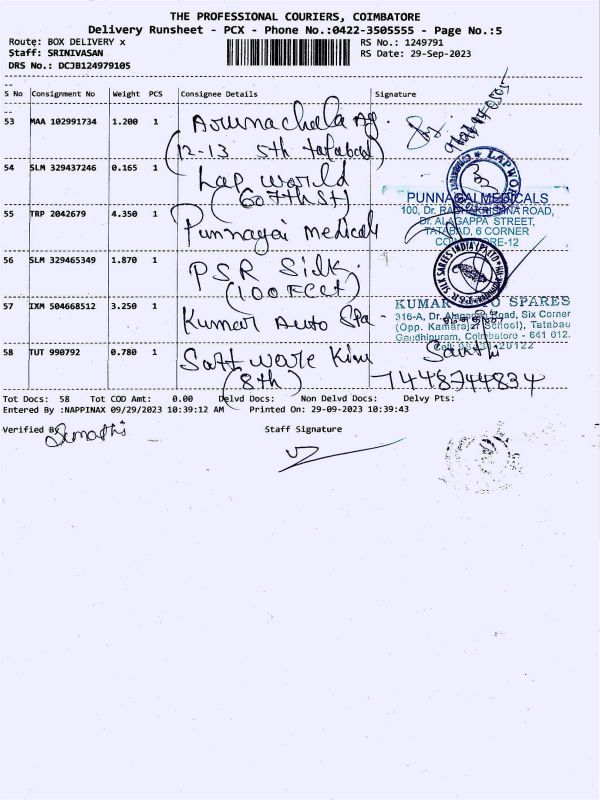 THE PROFESSIONAL COURIERS, COIMBATORE
Delivery Runsheet - PCX - Phone No.:0422-3505555 - Page No.:5
Route: BOX DELIVERY x
RS No.: 1249791
Staff: SRINIVASAN
RS Date: 29-Sep-2023
DRS No.: DCJB124979105
S No Consignment No Weight PCS Consignee Details Signature
53 MAA 102991734 1.200 1 Arunachala Ag.
(12-13 5th tatabad)
54 SLM 329437246 0.165 1 Lap world
(607th St)
LAPWO
55 TRP 2042679 4.350 1 Punnagai medicals
PUNNAGAI MEDICALS
100, Dr. RADHAKRISHNA ROAD,
Dr. ALAGAPPA STREET,
TATABAD, 6 CORNER
RE-12
56 SLM 329465349 1.870 1 PSR Silk.
(100 Feet)
P.S.R. SILK SAREES INDIA (P) LTD
57 IXM 504668512 3.250 1 Kumar Auto Spa -
KUMAR O SPARES
316-A, Dr. Alagappa Road, Six Corner
(Opp. Kamarajar School), Tatabad
Gandhipuram, Coimbatore - 641 012.
58 TUT 990792 0.780 1 Software Kim
(8th)
Santhi
7448744834
Tot Docs: 58 Tot COD Amt: 0.00 Delvd Docs: Non Delvd Docs: Delvy Pts:
Entered By :NAPPINAX 09/29/2023 10:39:12 AM Printed On: 29-09-2023 10:39:43
Verified By
Staff Signature